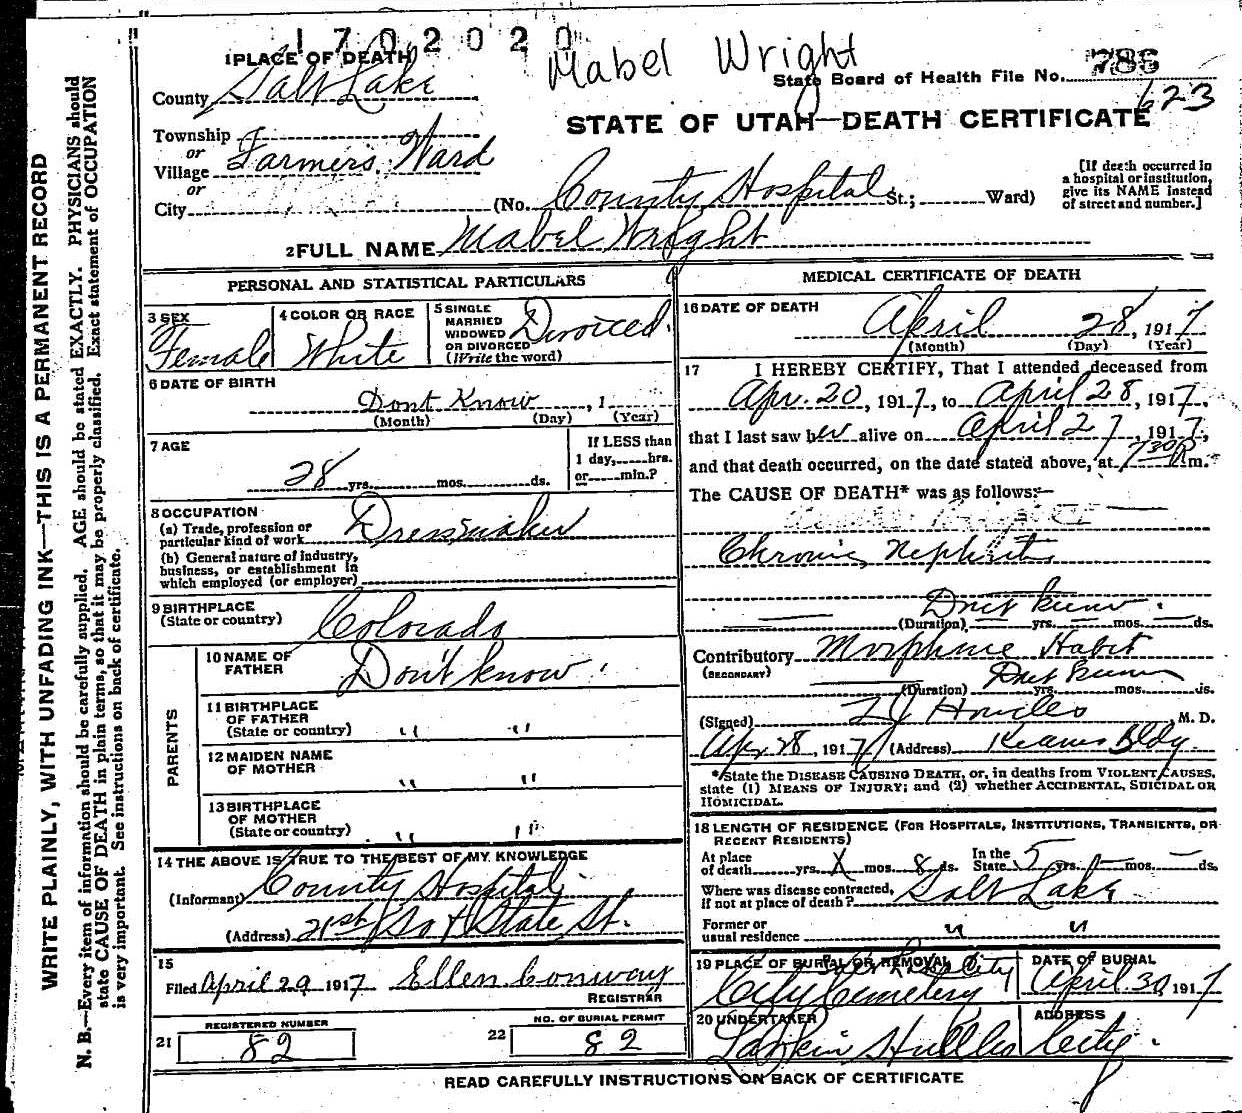 1702020
Mabel Wright
1 PLACE OF DEATH
State Board of Health File No. 786
County Salt Lake
623
STATE OF UTAH—DEATH CERTIFICATE
Township
or
Village Farmers Ward
or
City (No. County Hospital St.; Ward)
[If death occurred in
a hospital or institution,
give its NAME instead
of street and number.]
2 FULL NAME Mabel Wright
PERSONAL AND STATISTICAL PARTICULARS
3 SEX
Female
4 COLOR OR RACE
White
5 SINGLE
MARRIED
WIDOWED
OR DIVORCED
(Write the word)
Divorced
6 DATE OF BIRTH
Dont Know, 1
(Month) (Day) (Year)
7 AGE
28 yrs. mos. ds.
If LESS than
1 day, hrs.
or min.?
8 OCCUPATION
(a) Trade, profession or
particular kind of work Dressmaker
(b) General nature of industry,
business, or establishment in
which employed (or employer)
9 BIRTHPLACE
(State or country) Colorado
PARENTS
10 NAME OF
FATHER Don't know
11 BIRTHPLACE
OF FATHER
(State or country) " "
12 MAIDEN NAME
OF MOTHER " "
13 BIRTHPLACE
OF MOTHER
(State or country) " "
14 THE ABOVE IS TRUE TO THE BEST OF MY KNOWLEDGE
(Informant) County Hospital
(Address) 21st So & State St.
15
Filed April 29 1917 Ellen Conway
REGISTRAR
21 REGISTERED NUMBER
82
22 NO. OF BURIAL PERMIT
82
MEDICAL CERTIFICATE OF DEATH
16 DATE OF DEATH
April 28, 1917
(Month) (Day) (Year)
17 I HEREBY CERTIFY, That I attended deceased from
Apr. 20, 1917, to April 28, 1917,
that I last saw her alive on April 27, 1917,
and that death occurred, on the date stated above, at 7 30 P. m.
The CAUSE OF DEATH* was as follows:—
Chronic Nephritis
Dont know
(Duration) yrs. mos. ds.
Contributory Morphine Habit
(SECONDARY)
(Duration) Dont know yrs. mos. ds.
(Signed) M. D.
Apr 28, 1917 (Address) Kearns Bldg.
*State the DISEASE CAUSING DEATH, or, in deaths from VIOLENT CAUSES,
state (1) MEANS OF INJURY; and (2) whether ACCIDENTAL, SUICIDAL OR
HOMICIDAL.
18 LENGTH OF RESIDENCE (FOR HOSPITALS, INSTITUTIONS, TRANSIENTS, OR
RECENT RESIDENTS)
At place
of death yrs. X mos. 8 ds.
In the
State 5 yrs. — mos. — ds.
Where was disease contracted,
if not at place of death? Salt Lake
Former or
usual residence " "
19 PLACE OF BURIAL OR REMOVAL
City Cemetery
DATE OF BURIAL
April 30, 1917
20 UNDERTAKER
Larkin
ADDRESS
City.
READ CAREFULLY INSTRUCTIONS ON BACK OF CERTIFICATE
WRITE PLAINLY, WITH UNFADING INK—THIS IS A PERMANENT RECORD
N. B.—Every item of information should be carefully supplied. AGE should be stated EXACTLY. PHYSICIANS should
state CAUSE OF DEATH in plain terms, so that it may be properly classified. Exact statement of OCCUPATION
is very important. See instructions on back of certificate.